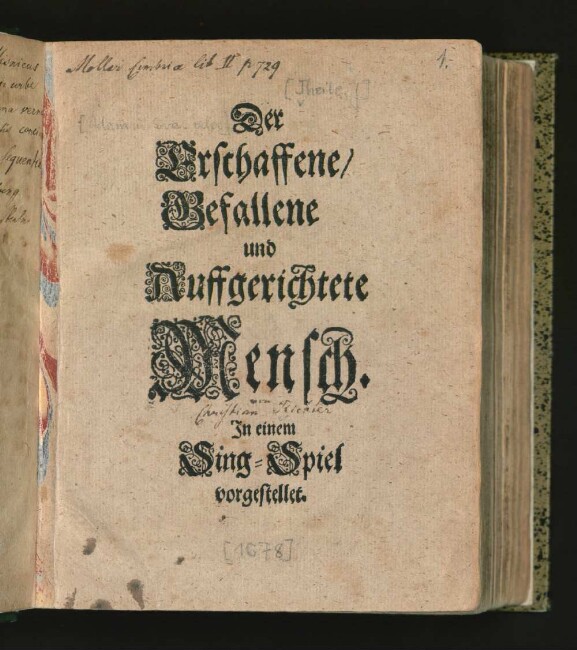 Mollari Cimbria lib II p. 729
1.
[Theile.]
Der
Erschaffene/
Gefallene
und
Auffgerichtete
Mensch.
von
Christian Richter
In einem
Sing=Spiel
vorgestellet.
[1678]